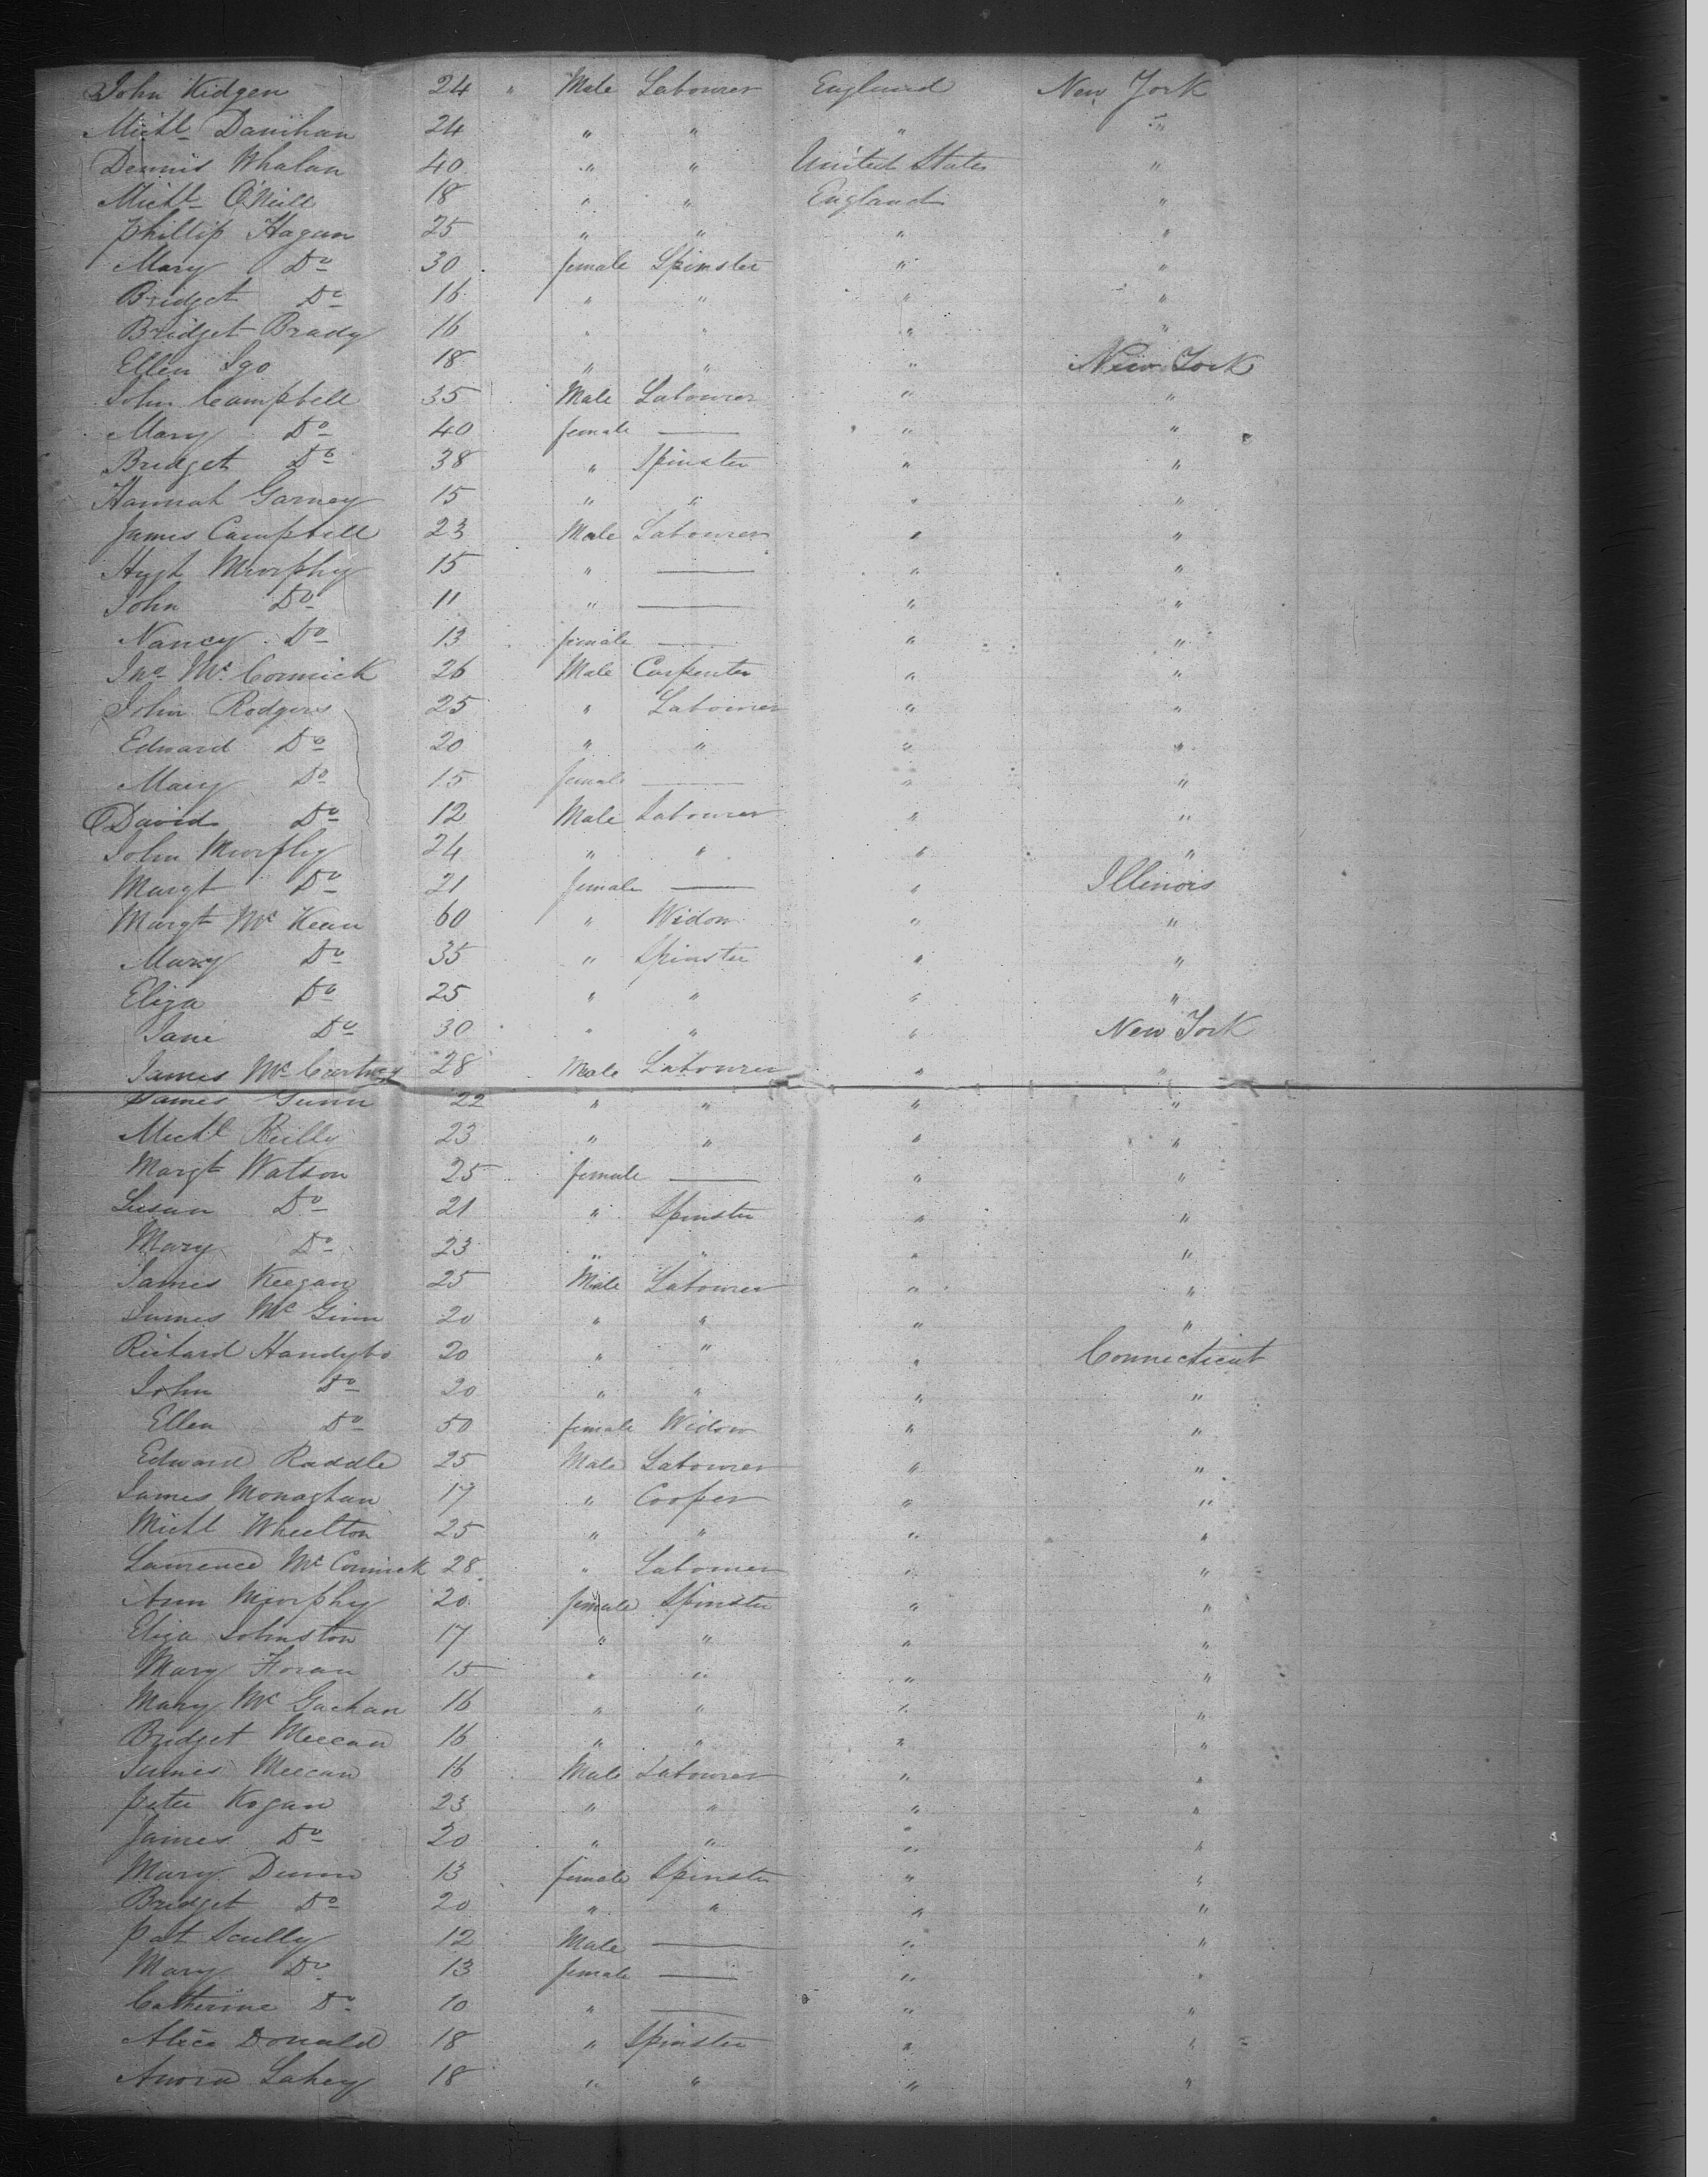 John Kidgen 24 " Male Labourer England New York
Michl Danihan 24 " " " "
Dennis Whalan 40 " " United States "
Michl O'Neill 18 " " England "
Phillip Hagan 25 " " " "
Mary Do 30 female Spinster " "
Bridget Do 16 " " " "
Bridget Brady 16 " " " "
Ellen Igo 18 " " " New York
John Campbell 35 Male Labourer " "
Mary Do 40 female — " "
Bridget Do 38 " Spinster " "
Hannah Garney 15 " " " "
James Campbell 23 Male Labourer " "
Hugh Murphy 15 " — " "
John Do 11 " — " "
Nancy Do 13 female — " "
Jno Mc Cormick 26 Male Carpenter " "
John Rodgers 25 " Labourer " "
Edward Do 20 " " " "
Mary Do 15 female — " "
David Do 12 Male Labourer " "
John Murphy 24 " " " "
Margt Do 21 female — " Illinois
Margt Mc Kean 60 " Widow " "
Mary Do 35 " Spinster " "
Eliza Do 25 " " " "
Jane Do 30 " " " New York
James Mc Cartney 28 Male Labourer " "
James Gunn 22 " " " "
Michl Reilly 23 " " " "
Margt Watson 25 female — " "
Susan Do 21 " Spinster " "
Mary Do 23 " " " "
James Keegan 25 Male Labourer " "
James Mc Ginn 20 " " " "
Richard 20 " " " Connecticut
John Do 20 " " " "
Ellen Do 50 female Widow " "
Edward Raddle 25 Male Labourer " "
James Monaghan 17 " Cooper " "
Michl Wheelton 25 " " " "
Lawrence Mc Cormick 28 " Labourer " "
Ann Murphy 20 female Spinster " "
Eliza Johnston 17 " " " "
Mary Horan 15 " " " "
Mary Mc Gachan 16 " " " "
Bridget Meecan 16 " " " "
James Meecan 16 Male Labourer " "
Peter Kogan 23 " " " "
James Do 20 " " " "
Mary Dunn 13 female Spinster " "
Bridget Do 20 " " " "
Pat Scully 12 Male — " "
Mary Do 13 female — " "
Catherine Do 10 " — " "
Alice Donald 18 " Spinster " "
Anora Lahey 18 " " " "